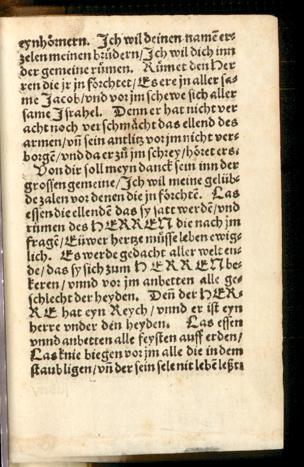 eynhörnern. Jch wil deinen namē er-
zelen meinen brüdern/Jch wil dich inn
der gemeine rümen. Rümet den Her
ren die jr jn förchtet/Es ere jn aller sa-
me Jacob/vnd vor jm schewe sich aller
same Jsrahel. Denn er hat nicht ver
acht noch verschmächt das ellend des
armen/vñ sein antlitz vor jm nicht ver-
borgē/vnd da er zů jm schrey/höret ers.
Von dir soll meyn danck sein inn der
grossen gemeine/Jch wil meine gelüb-
de zalen vor denen die jn förchtē. Las
essen die ellendē das sy satt werdē/vnd
rümen des HERREN die nach jm
fragē/Eüwer hertze müsse leben ewig-
lich. Es werde gedacht aller welt en-
de/das sy sich zum HERREN be-
keren/vnnd vor jm anbetten alle ge-
schlecht der heyden. Deñ der HER-
RE hat eyn Reych/vnnd er ist eyn
herre vnder den heyden. Las essen
vnnd anbetten alle feysten auff erden/
Las knie biegen vor jm alle die in dem
staub ligen/vñ der sein sele nit lebē leßt